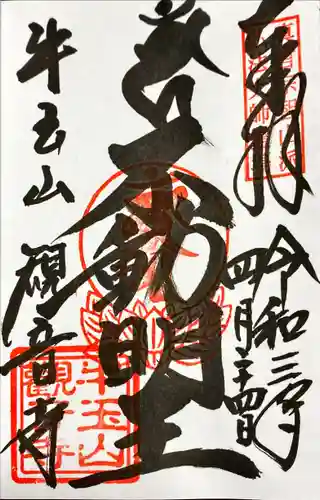 奉拝
令和三年
四月二十四日
不動明王
牛玉山
観音寺
牛玉山
觀音寺